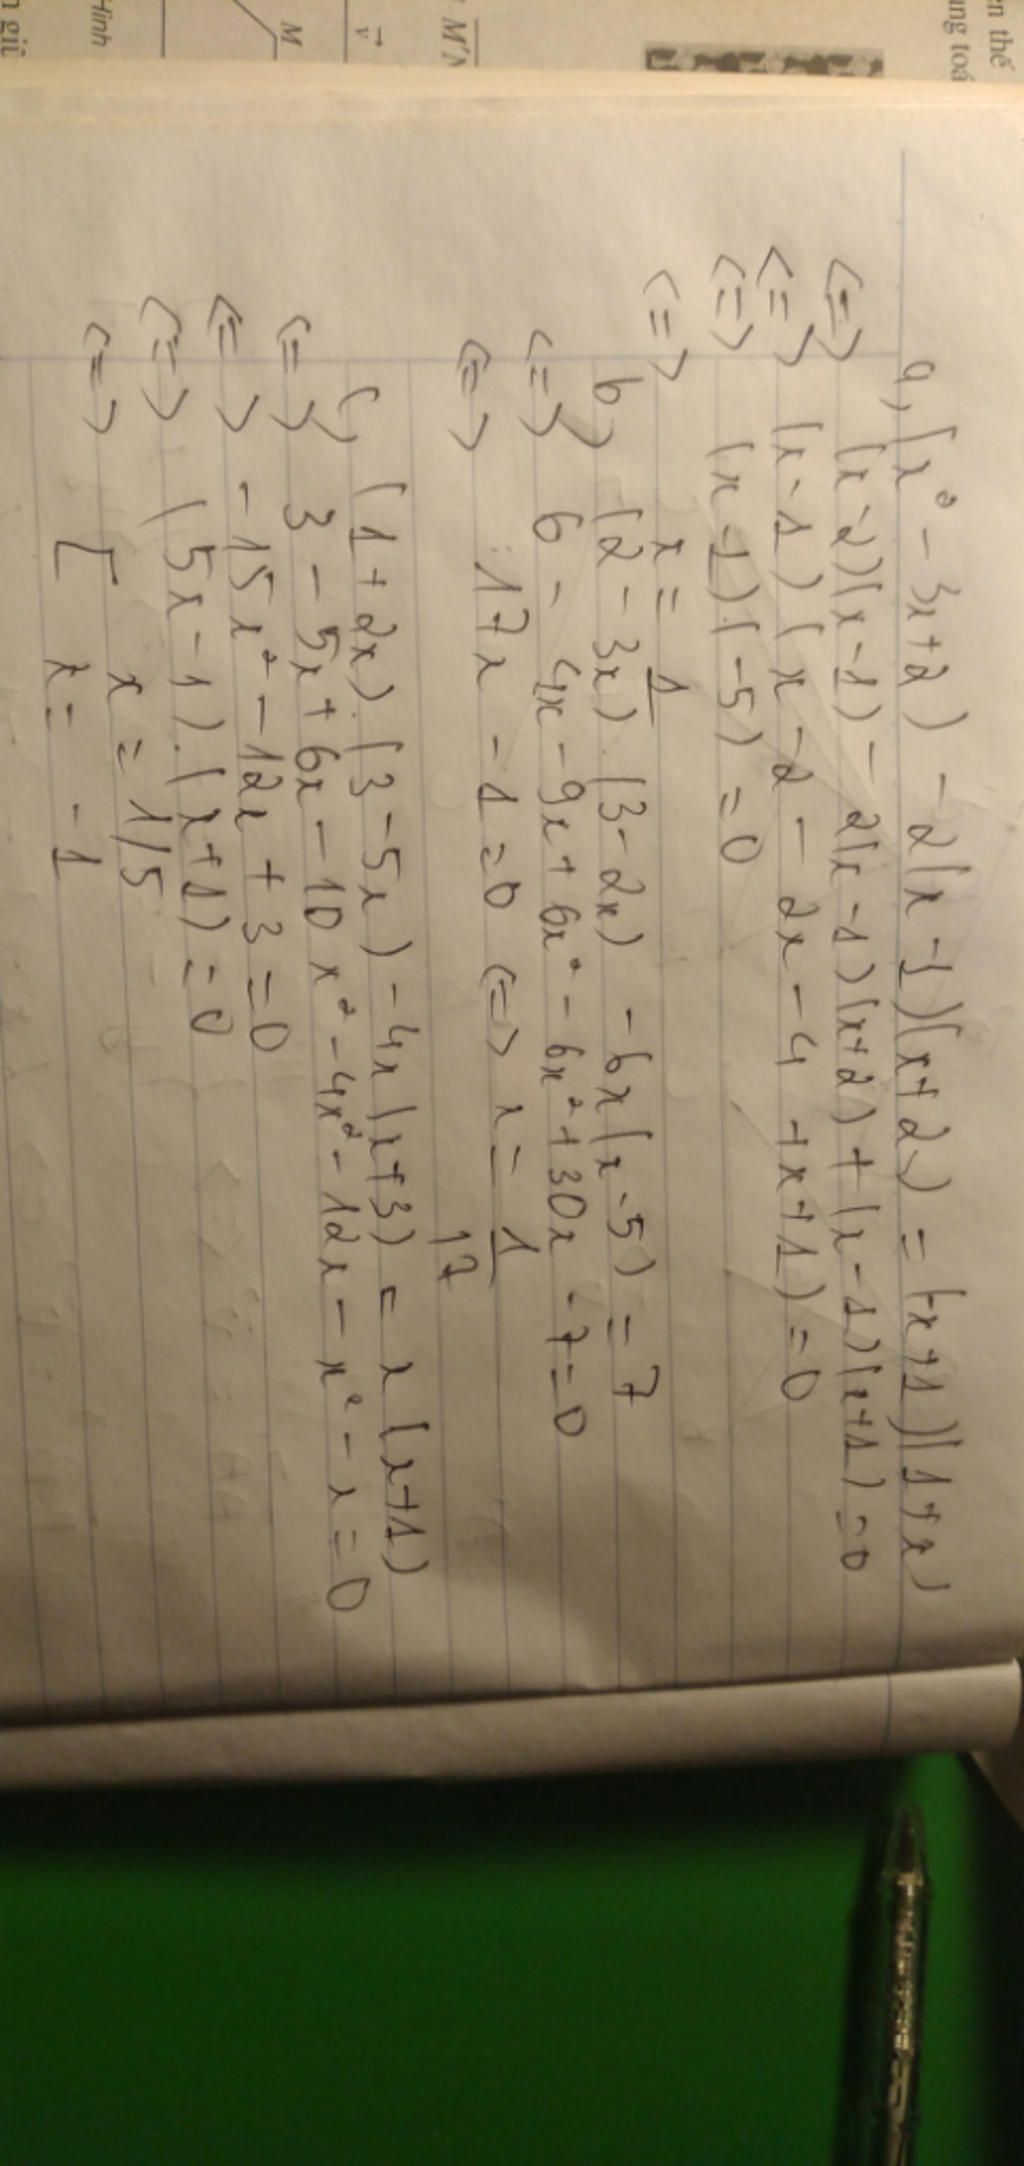 en thế
ung toá
M'N
v
M
Hình
n giữ
a, (x² - 3x+2) - 2(x-1)(x+2) = (-x+1)(1+x)
<=> (x-2)(x-1) - 2(x-1)(x+2) + (x-1)(x+1) = 0
<=> (x-1)(x-2 - 2x-4 +x+1) = 0
<=> (x-1)(-5) = 0
<=> x = 1
b, (2-3x).(3-2x) - 6x(x-5) = 7
<=> 6 - 4x - 9x + 6x² - 6x² + 30x - 7 = 0
<=> 17x - 1 = 0 <=> x = 1/17
c, (1+2x).(3-5x) - 4x(x+3) = x(x+1)
<=> 3 - 5x + 6x - 10x² - 4x² - 12x - x² - x = 0
<=> -15x² - 12x + 3 = 0
<=> (5x-1).(x+1) = 0
<=> [ x = 1/5
x = -1